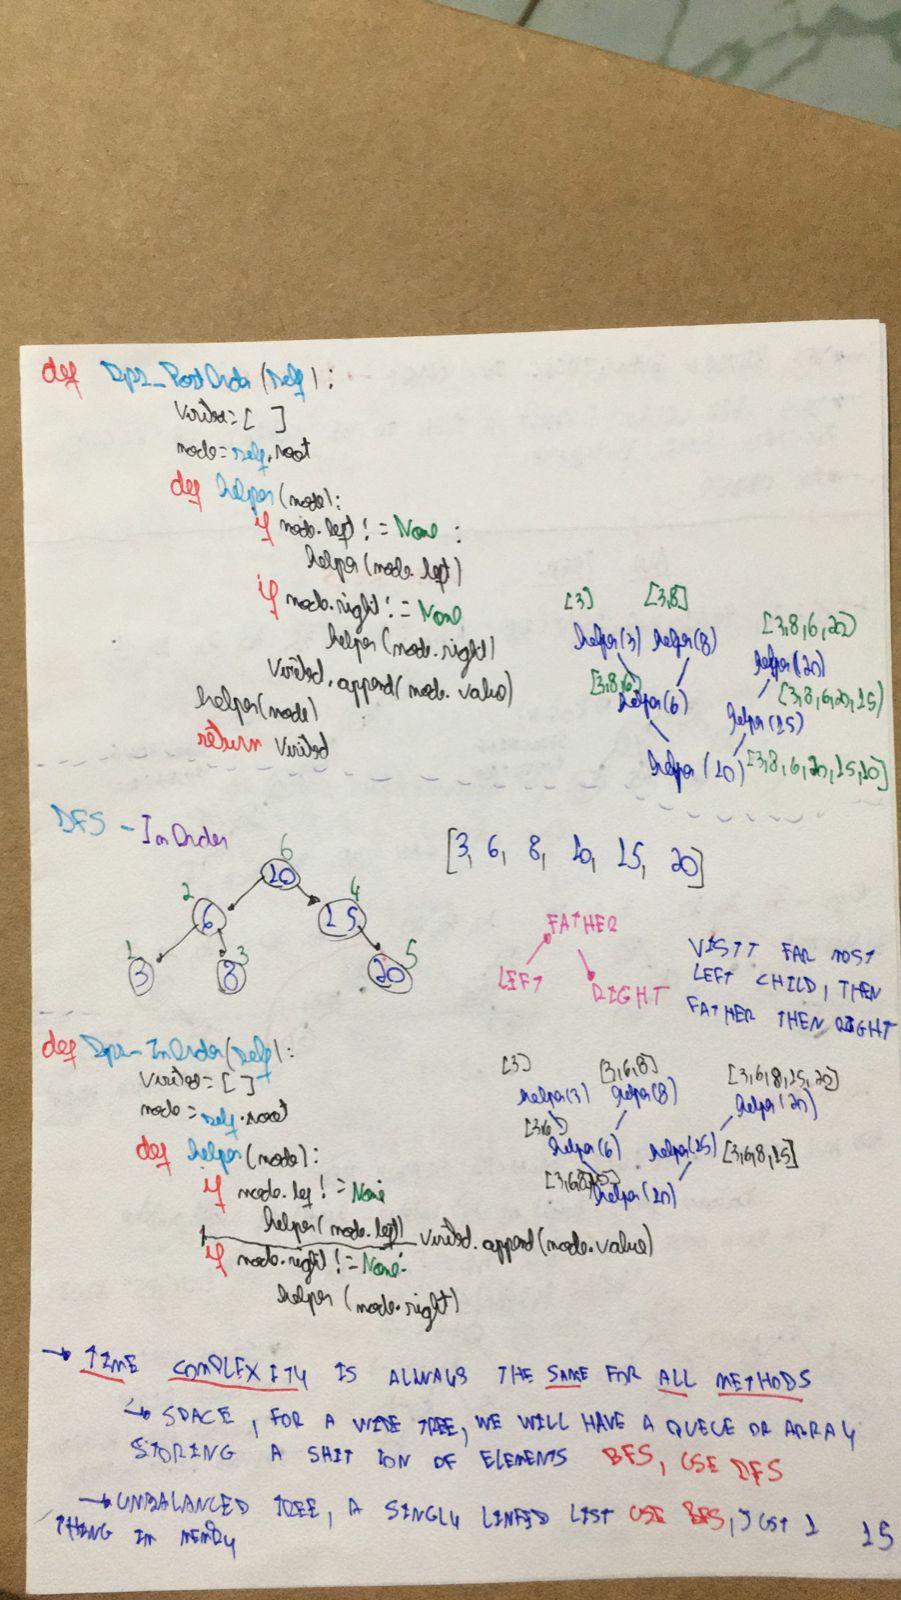 def Dps_PostOrder(self):
visited=[ ]
node=self.root
def helper(node):
if node.left != None :
helper(node.left)
if node.right != None
helper(node.right)
visited.append(node.value)
helper(node)
return visited
[3] [3,8]
helper(3) helper(8)
[3,8,6,20]
helper(20)
[3,8,6]
helper(6)
[3,8,6,20,15]
helper(15)
helper(10) [3,8,6,20,15,10]
DFS - InOrder
[3, 6, 8, 10, 15, 20]
6
10
2
6
4
15
1
3
3
8
5
20
FATHER
LEFT
RIGHT
VISIT FAR MOST
LEFT CHILD, THEN
FATHER THEN RIGHT
def Dps-InOrder(self):
visited=[ ]
node=self.root
def helper(node):
if node.lef != None
helper(node.left)
visited.append(node.value)
if node.right != None:
helper(node.right)
[3] [3,6,8] [3,6,8,15,20]
helper(3) helper(8) helper(20)
[3,6]
helper(6) helper(15) [3,6,8,15]
→ TIME COMPLEXITY IS ALWAYS THE SAME FOR ALL METHODS
↳ SPACE, FOR A WIDE TREE, WE WILL HAVE A QUEUE OR ARRAY
STORING A SHIT TON OF ELEMENTS BFS, USE DFS
→ UNBALANCED TREE, A SINGLY LINKED LIST USE BFS, JUST 1
THING IN MEMORY
15